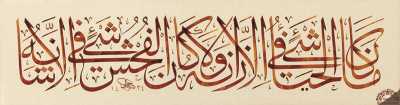 ما كان الحياء في شئ إلا زانه ولا كان الفحش في شئ إلا شانه